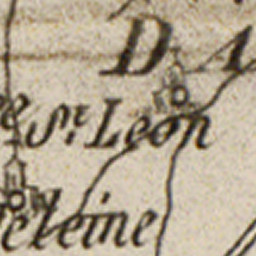 D A
St. Leon
eleine